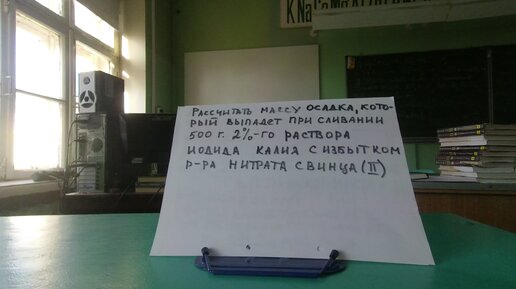 K Na Ca Mg Al
РАССЧИТАТЬ МАССУ ОСАДКА, КОТО-
РЫЙ ВЫПАДЕТ ПРИ СЛИВАНИИ
500 г. 2%-ГО РАСТВОРА
ИОДИДА КАЛИЯ С ИЗБЫТКОМ
Р-РА НИТРАТА СВИНЦА (II)